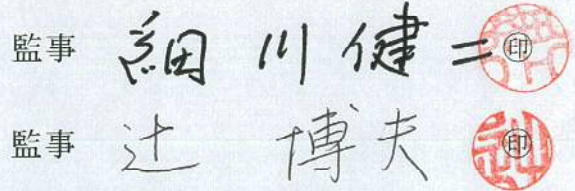 監事 細川健二 ㊞
監事 辻 博夫 ㊞